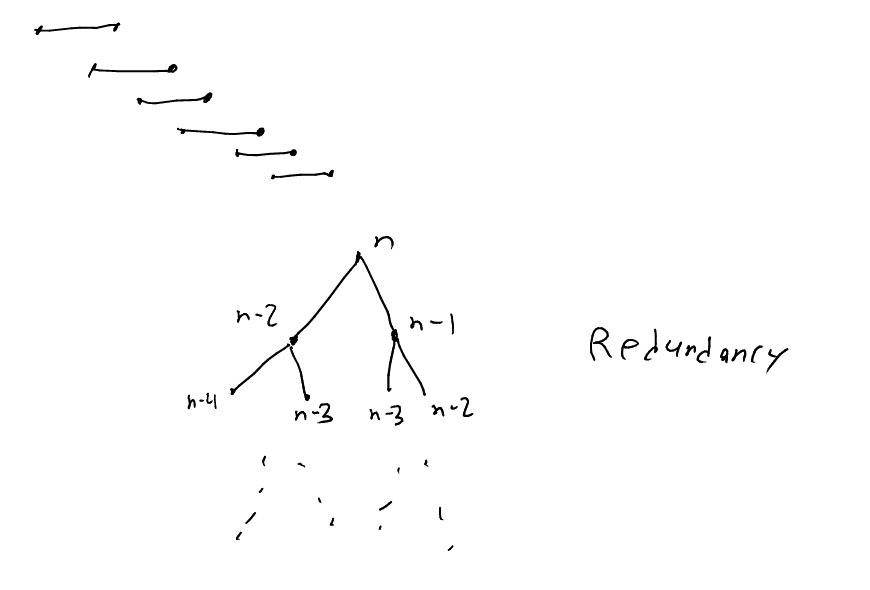 n
n-2 n-1
n-4 n-3 n-3 n-2
Redundancy